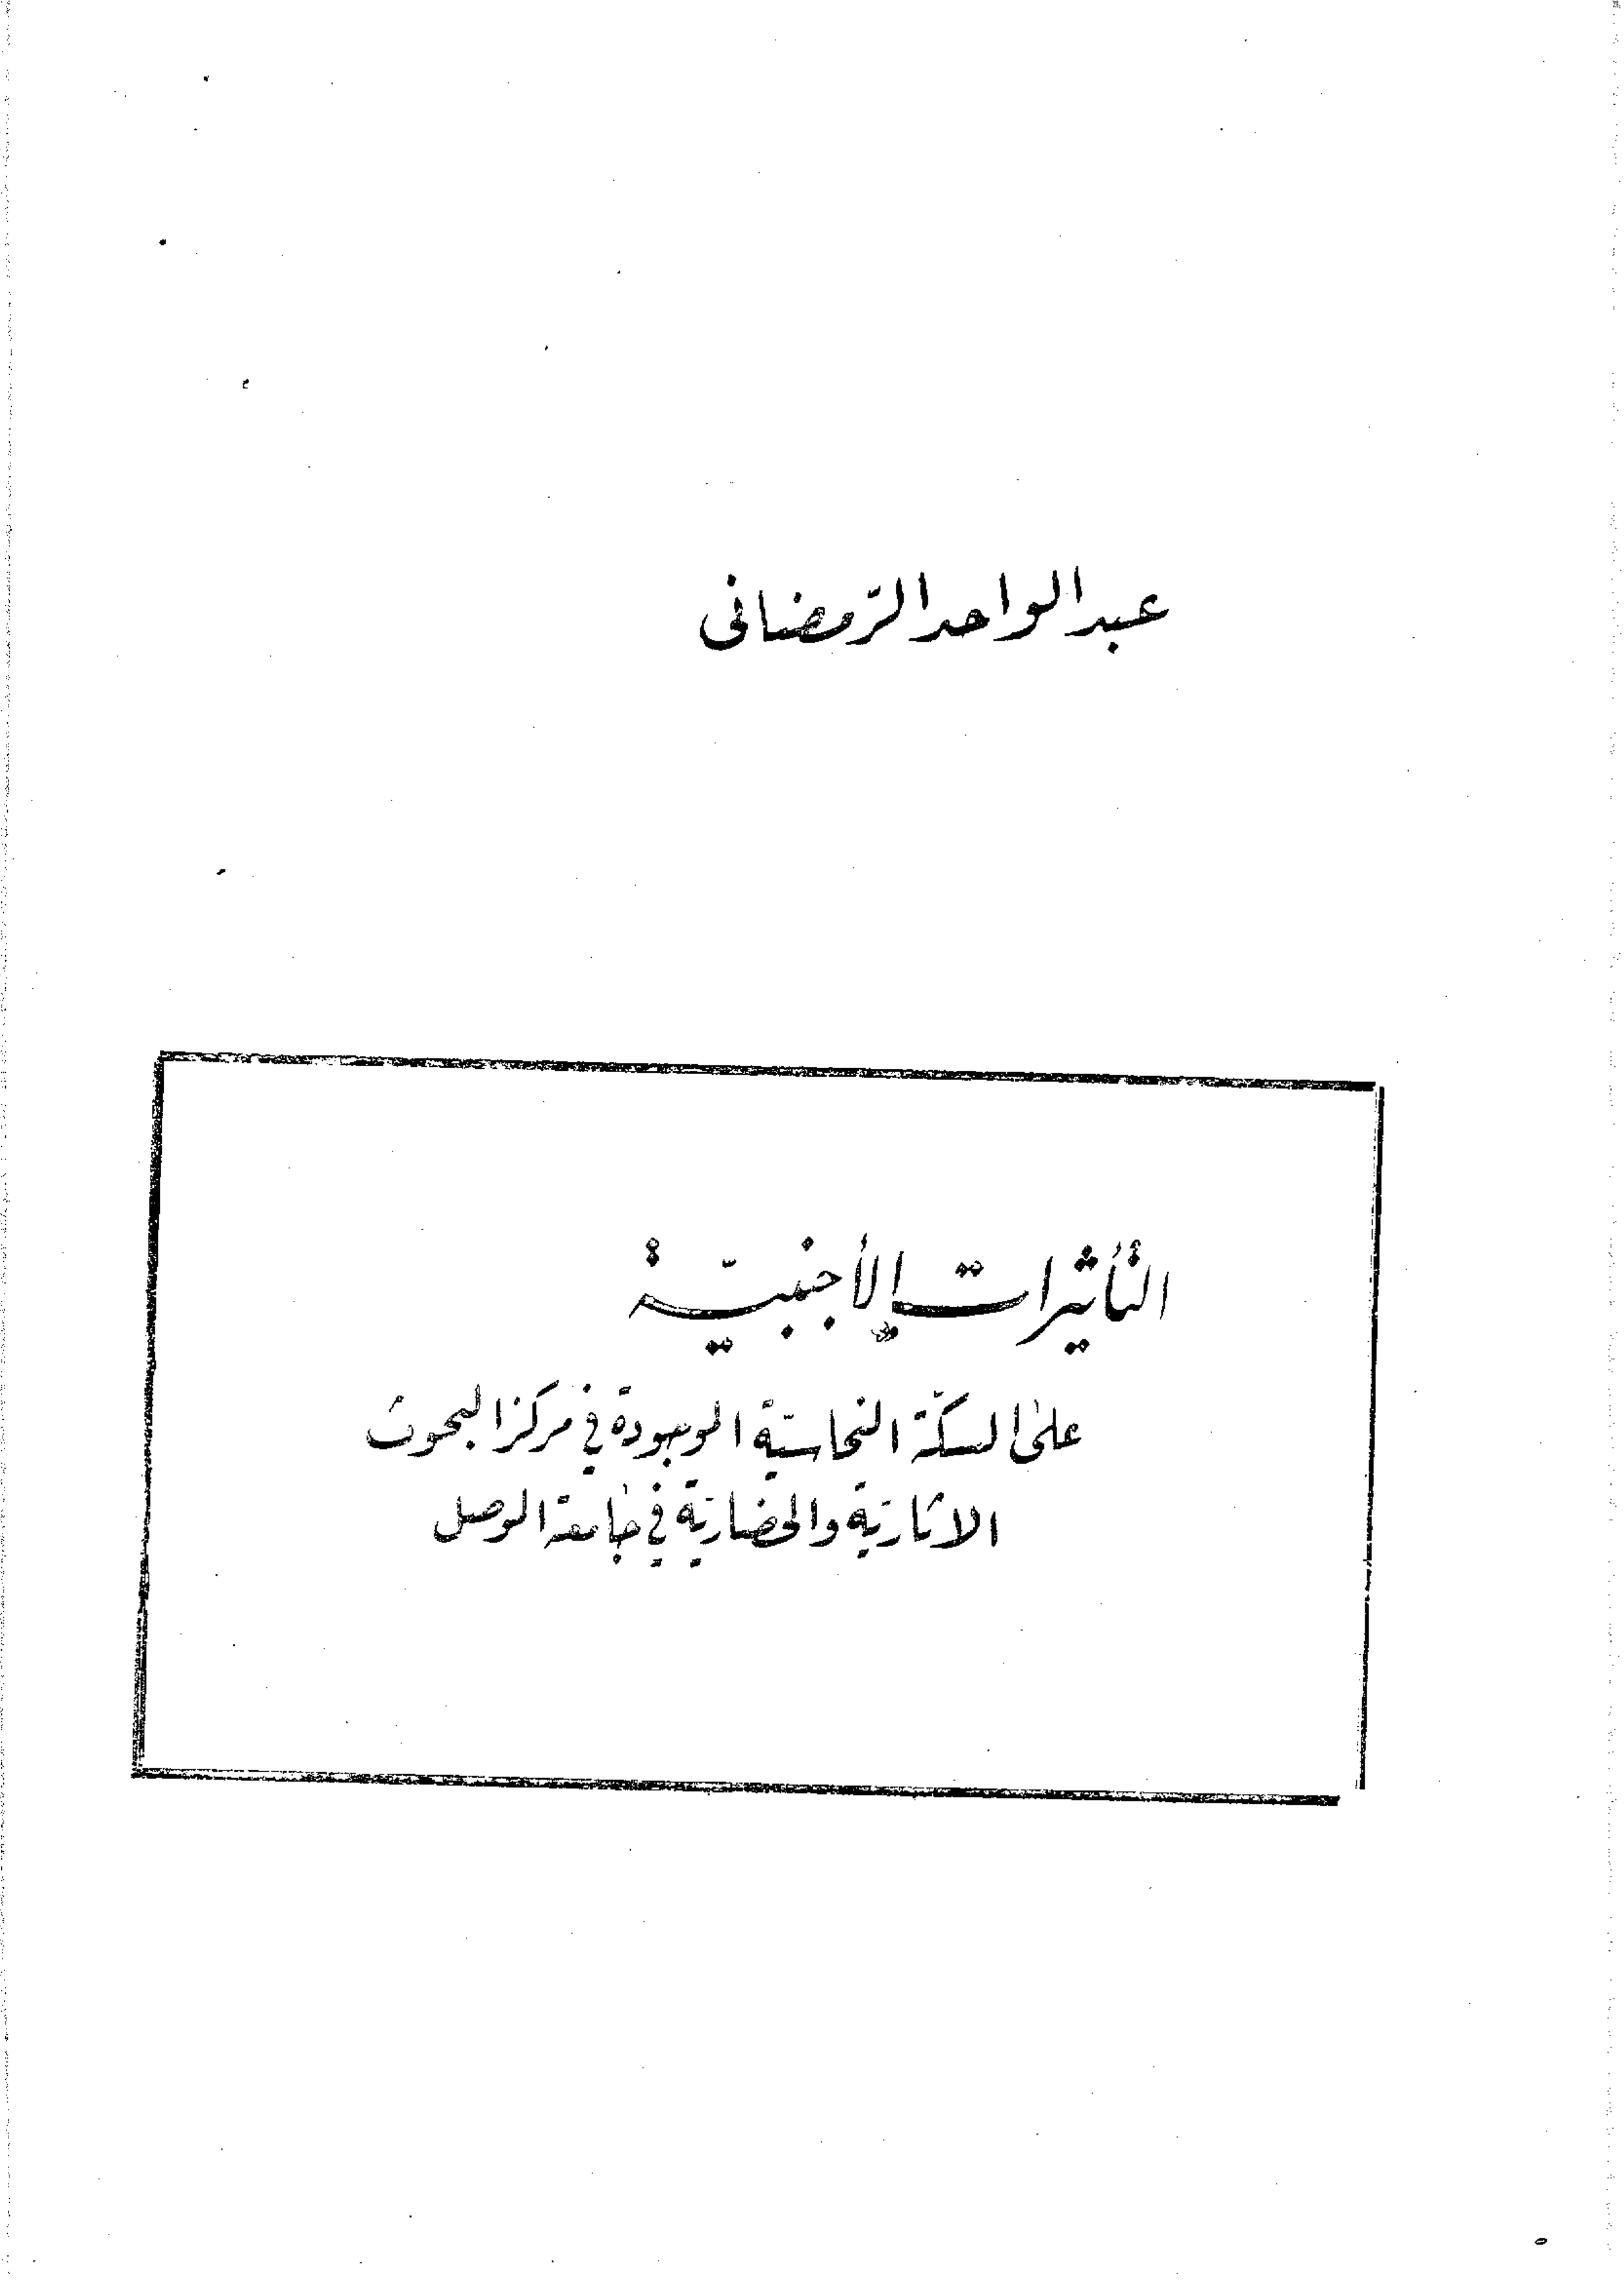 عبد الواحد الرّمضانى
التأثيرات الأجنبيّة
على السكّة النحاسيّة الموجودة في مركز البحوث
الاثاريّة والحضاريّة في جامعة الموصل